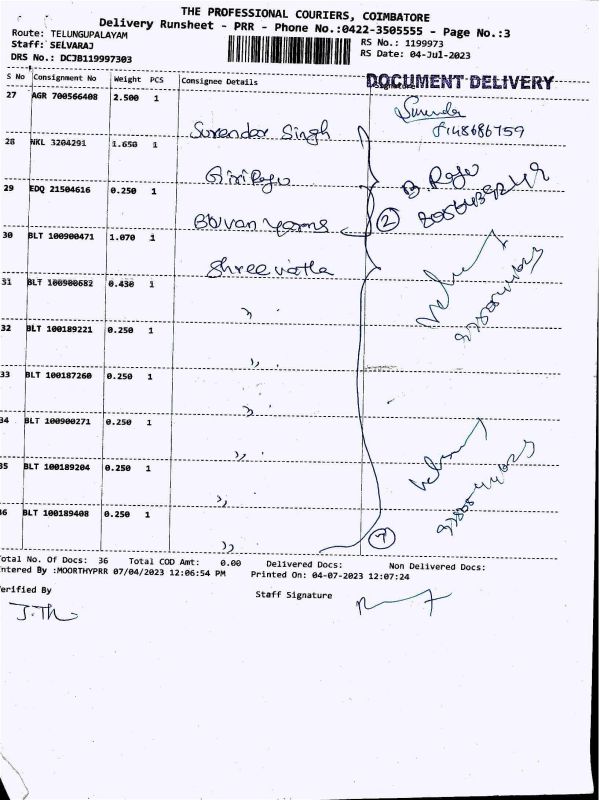 THE PROFESSIONAL COURIERS, COIMBATORE
Delivery Runsheet - PRR - Phone No.:0422-3505555 - Page No.:3
Route: TELUNGUPALAYAM
Staff: SELVARAJ
DRS No.: DCJB119997303
RS No.: 1199973
RS Date: 04-Jul-2023
S No Consignment No Weight PCS Consignee Details
DOCUMENT DELIVERY
27 AGR 700566408 2.500 1
Surendar Singh
Surendar
8148686759
28 NKL 3204291 1.650 1
Giri Raju
B. Raju
29 EDQ 21504616 0.250 1
Buvan yarns
2
30 BLT 100900471 1.070 1
Shree vatla
31 BLT 100900682 0.430 1
,,
32 BLT 100189221 0.250 1
,,
33 BLT 100187260 0.250 1
,,
34 BLT 100900271 0.250 1
,,
35 BLT 100189204 0.250 1
,,
36 BLT 100189408 0.250 1
,,
7
Total No. Of Docs: 36 Total COD Amt: 0.00 Delivered Docs: Non Delivered Docs:
Entered By :MOORTHYPRR 07/04/2023 12:06:54 PM Printed On: 04-07-2023 12:07:24
Verified By
Staff Signature